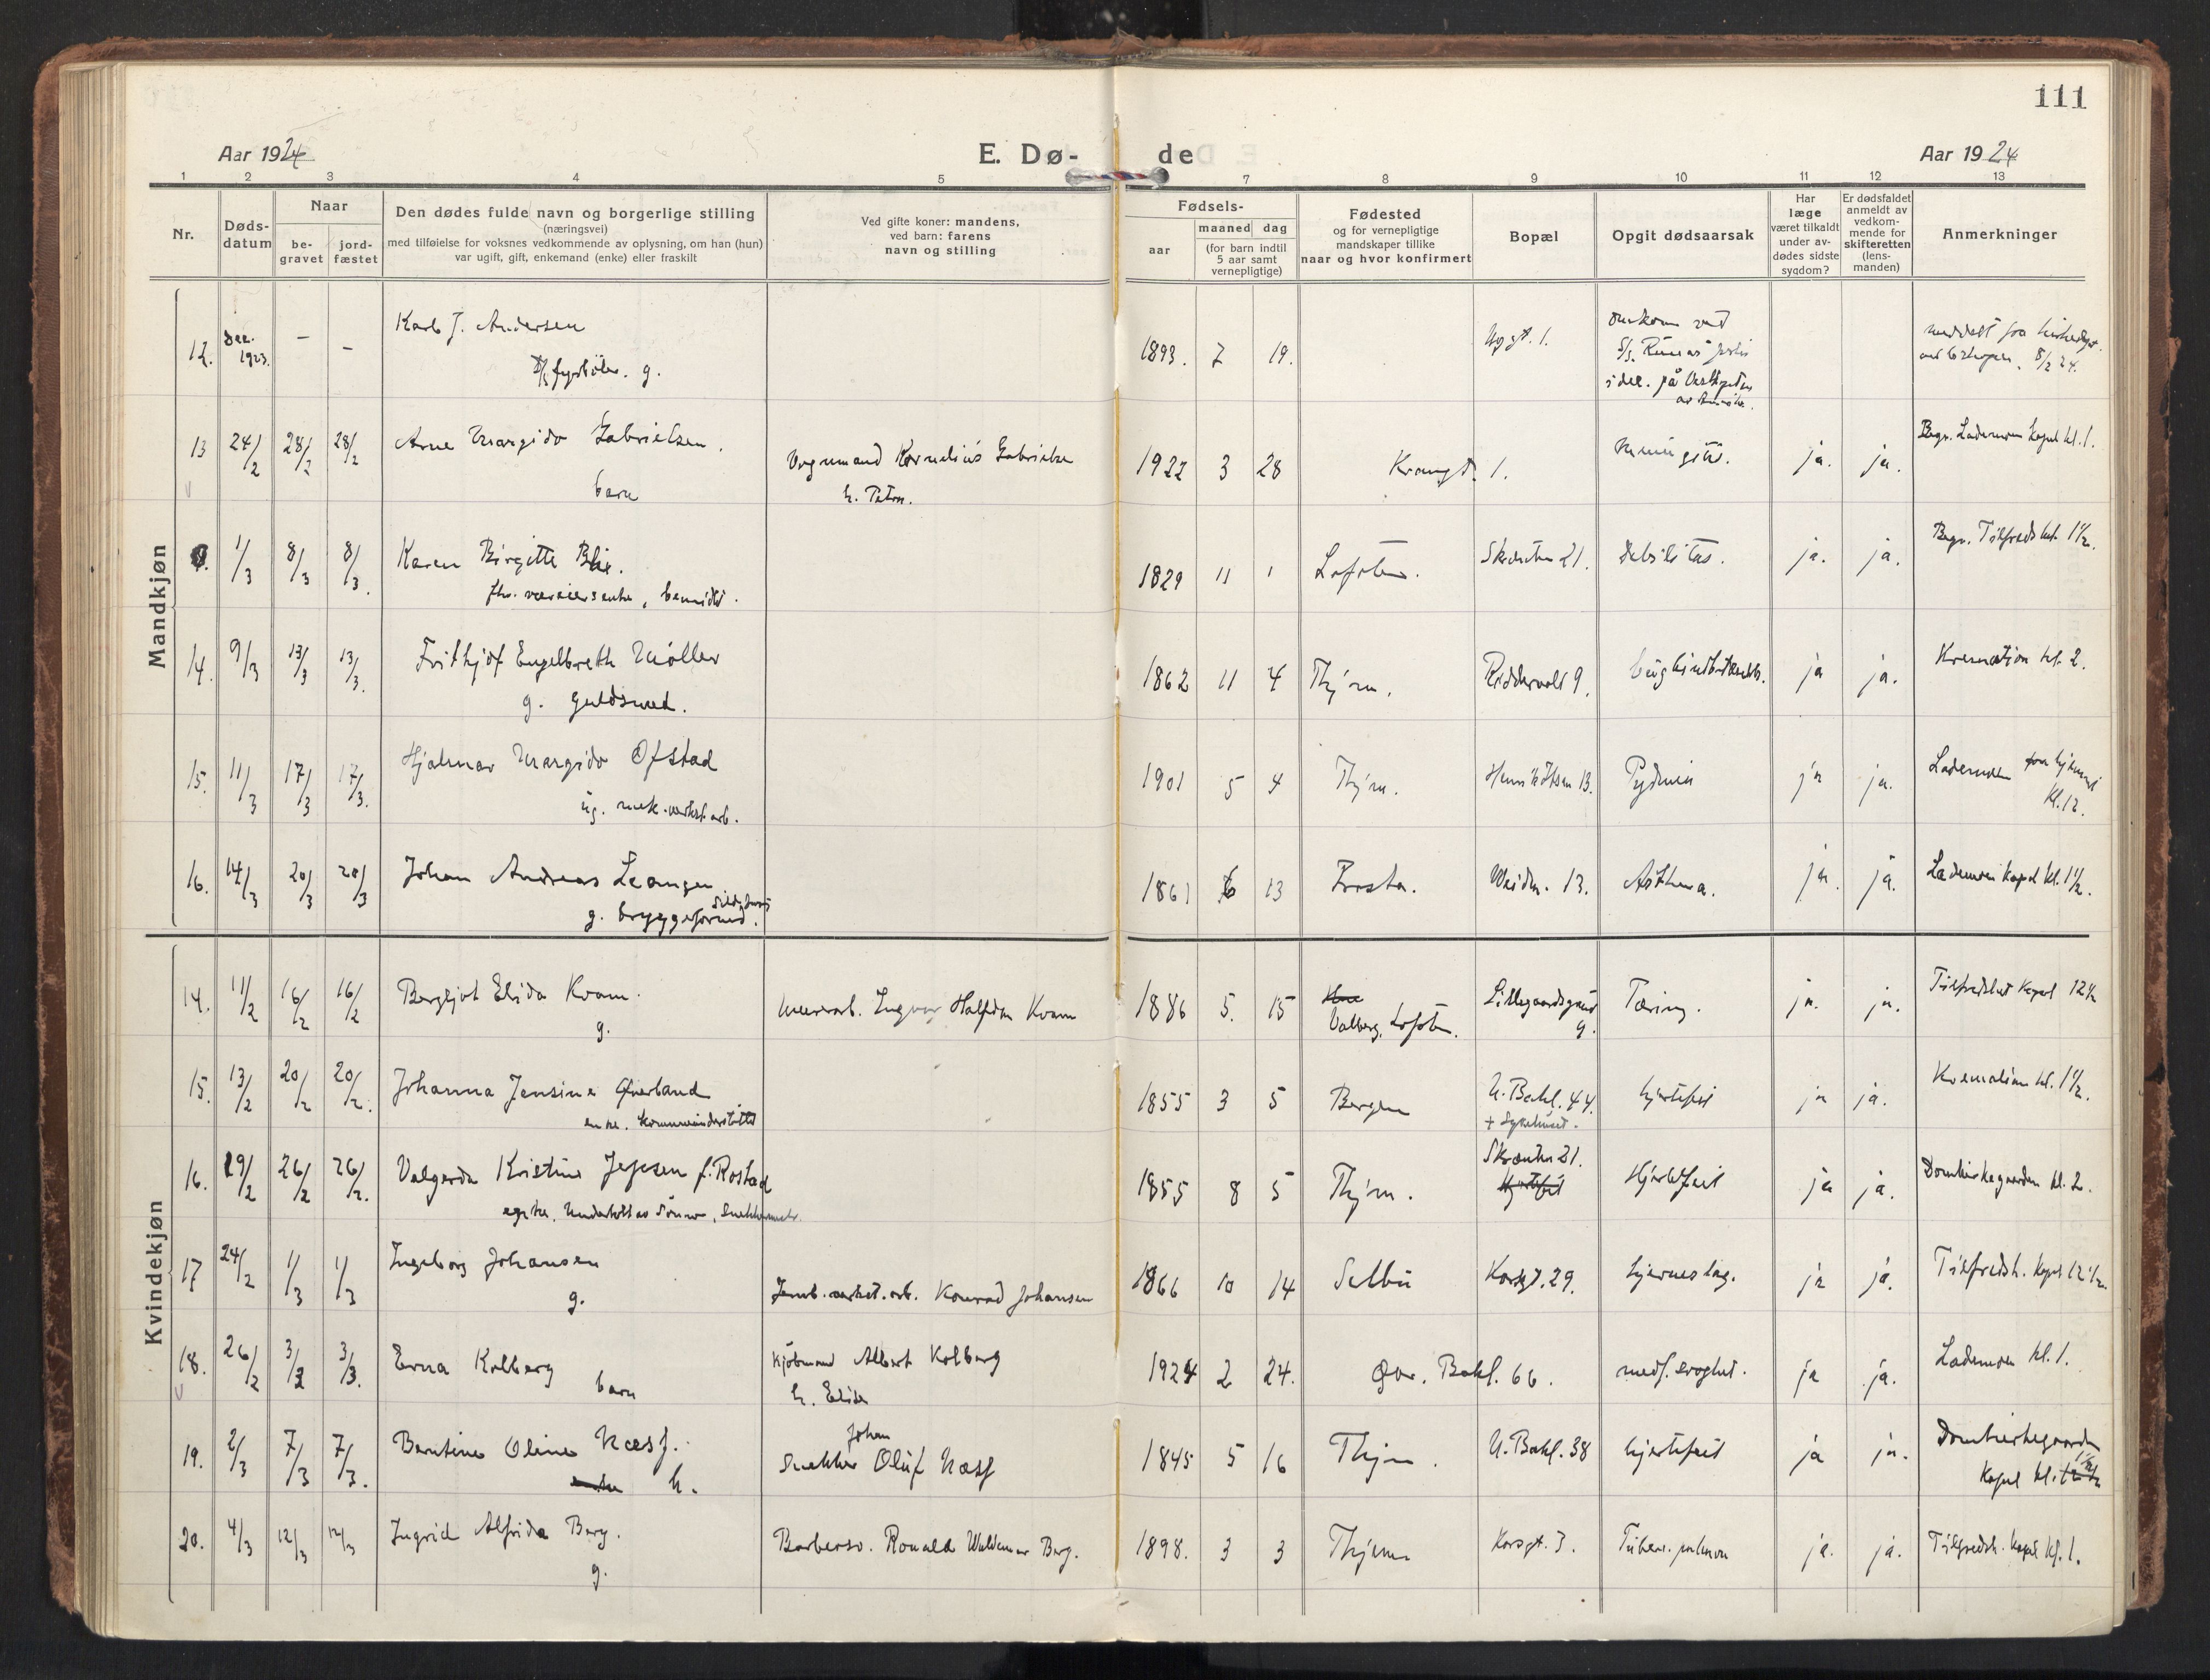 111
Aar 1924
E. Dø-
de
Aar 1924
1 2 3 4 5 7 8 9 10 11 12 13
Nr.
Døds-
datum
Naar
be-
gravet
jord-
fæstet
Den dødes fulde navn og borgerlige stilling
(næringsvei)
med tilføielse for voksnes vedkommende av oplysning, om han (hun)
var ugift, gift, enkemand (enke) eller fraskilt
Ved gifte koner: mandens,
ved barn: farens
navn og stilling
Fødsels-
aar
maaned dag
(for barn indtil
5 aar samt
vernepligtige)
Fødested
og for vernepligtige
mandskaper tillike
naar og hvor konfirmert
Bopæl
Opgit dødsaarsak
Har
læge
været tilkaldt
under av-
dødes sidste
sygdom?
Er dødsfaldet
anmeldt av
vedkom-
mende for
skifteretten
(lens-
manden)
Anmerkninger
Mandkjøn
12. Dec. 1923. - - Karl J. Andersen
fyrbøter. g.
1893. 7 19.
omkom ved
i dec. på
8/2 24.
13 24/2 28/2 28/2 Arne Margido Gabrielsen.
barn
Vognmand Kornelius Gabrielsen
h. Petra.
1922 3 28 Kramgt. 1. meningitis. ja. ja. Begr. Lademoen kapel kl. 1.
1/3 8/3 8/3. Karen Birgitte
1829 11 1 Lofoten. 21. debilitas. ja. ja. Begr. Tilfredshet. 1 1/2.
14. 9/3 13/3 13/3. Frithjof Engelbreth Møller
g. guldsmed.
1862 11 4 Thjm. Riddervolt 9. ja ja. Kremation kl. 2.
15. 11/3 17/3 17/3. Hjalmar Margido Ofstad
ug. mek. verkst. arb.
1901 5 4 Thjm. Henrik Ibsen 13. ja ja. Lademoen
kl. 12.
16. 14/3 20/3 20/3 Johan Andreas Leangen
g. bryggeformd.
1861 6 13 Frosta. Weidm. 13. Asthma. ja. ja. Lademoen kapel kl. 1 1/2.
Kvindekjøn
14. 11/2 16/2 16/2 Bergljot Elida Kvam.
g.
murerarb. Ingvar Halfdan Kvam
1886 5. 15
Valberg, Lofoten. Lillegaardsgrund
9. Tæring. ja. ja. Tilfredshet kapel 12 1/2
15. 13/2 20/2 20/2. Johanna Jensine Øverland
enke. kommuneunderstøttet
1855 3 5 Bergen U. Bakl. 44.
+ Sykehuset. hjertefeil ja ja. Kremation kl. 1 1/2.
16. 19/2 26/2 26/2. Valgerda Kristine Jepsen f. Rostad
1855 8 5 Thjm. 21.
Hjertefeil Hjertefeil ja ja. Domkirkegaarden kl. 2.
17 24/2 1/3 1/3 Ingeborg Johansen
g.
Jernb. verkst. arb. Konrad Johansen
1866 10 14 Selbu Korsgt. 29. hjerneslag. ja ja. Tilfredsh. kapel 12 1/2.
18. 26/2 3/3 3/3. Erna Kolberg
barn
Kjøbmand Albert Kolberg
h. Elida
1924 2 24. Øvr. Bakl. 66. medf. svaghet. ja ja. Lademoen kl. 1.
19. 2/3 7/3 7/3. Berntine Oline Næss.
enke h.
Johan
Snekker Oluf Næss
1845 5 16 Thjm. U. Bakl. 38 hjertefeil ja ja. Domkirkegaarden
Kapel kl.
20. 4/3 12/3 12/3 Ingrid Alfrida Berg.
g.
Barbersv. Ronald Waldemar Berg.
1898. 3 3 Thjem Korsgt. 3. Tuberc. pulmon ja. ja. Tilfredsh. kapel kl. 1.